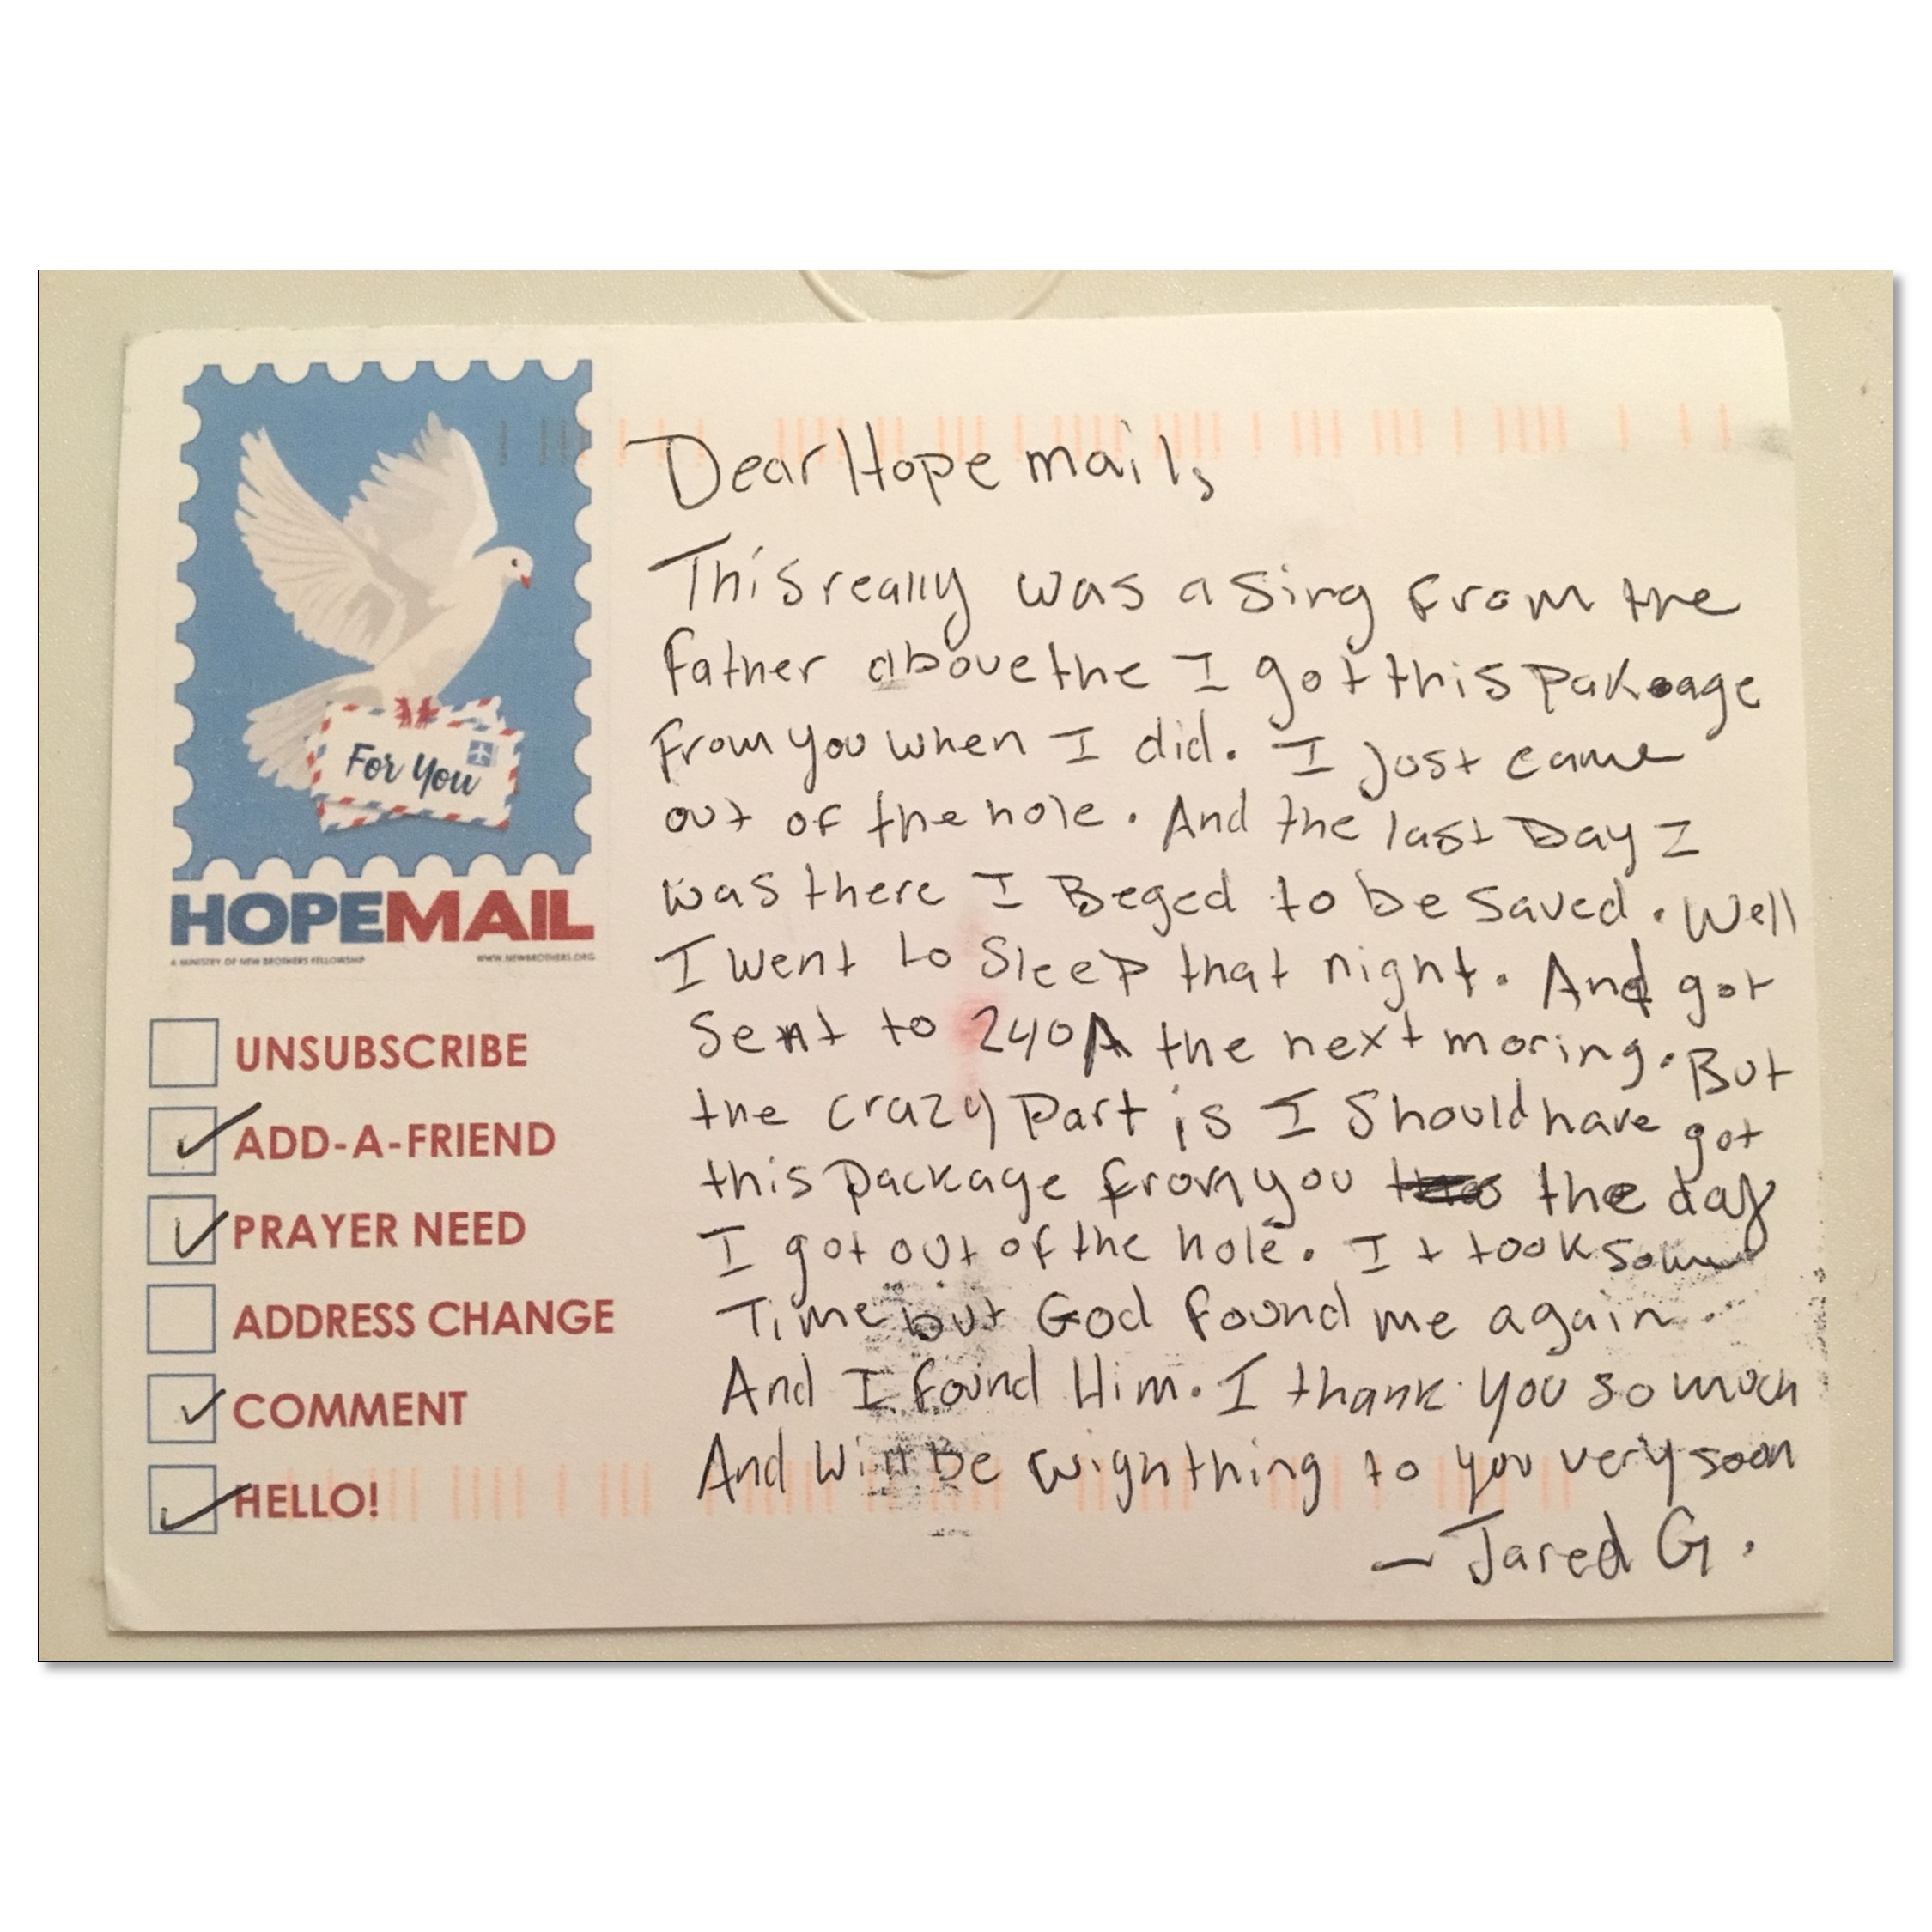 For You
HOPEMAIL
A MINISTRY OF NEW BROTHERS FELLOWSHIP WWW.NEWBROTHERS.ORG
UNSUBSCRIBE
ADD-A-FRIEND
PRAYER NEED
ADDRESS CHANGE
COMMENT
HELLO!
Dear Hope mail,
This really was a sing from the
Father above the I got this pakage
From you when I did. I just came
out of the hole. And the last Day I
was there I Beged to be saved. Well
I went to Sleep that night. And got
Sent to 240A the next moring. But
the crazy Part is I Should have got
this Package from you the day
I got out of the hole. It took some
Time but God found me again.
And I found Him. I thank you so much
And will Be wighthing to you very soon
— Jared G.